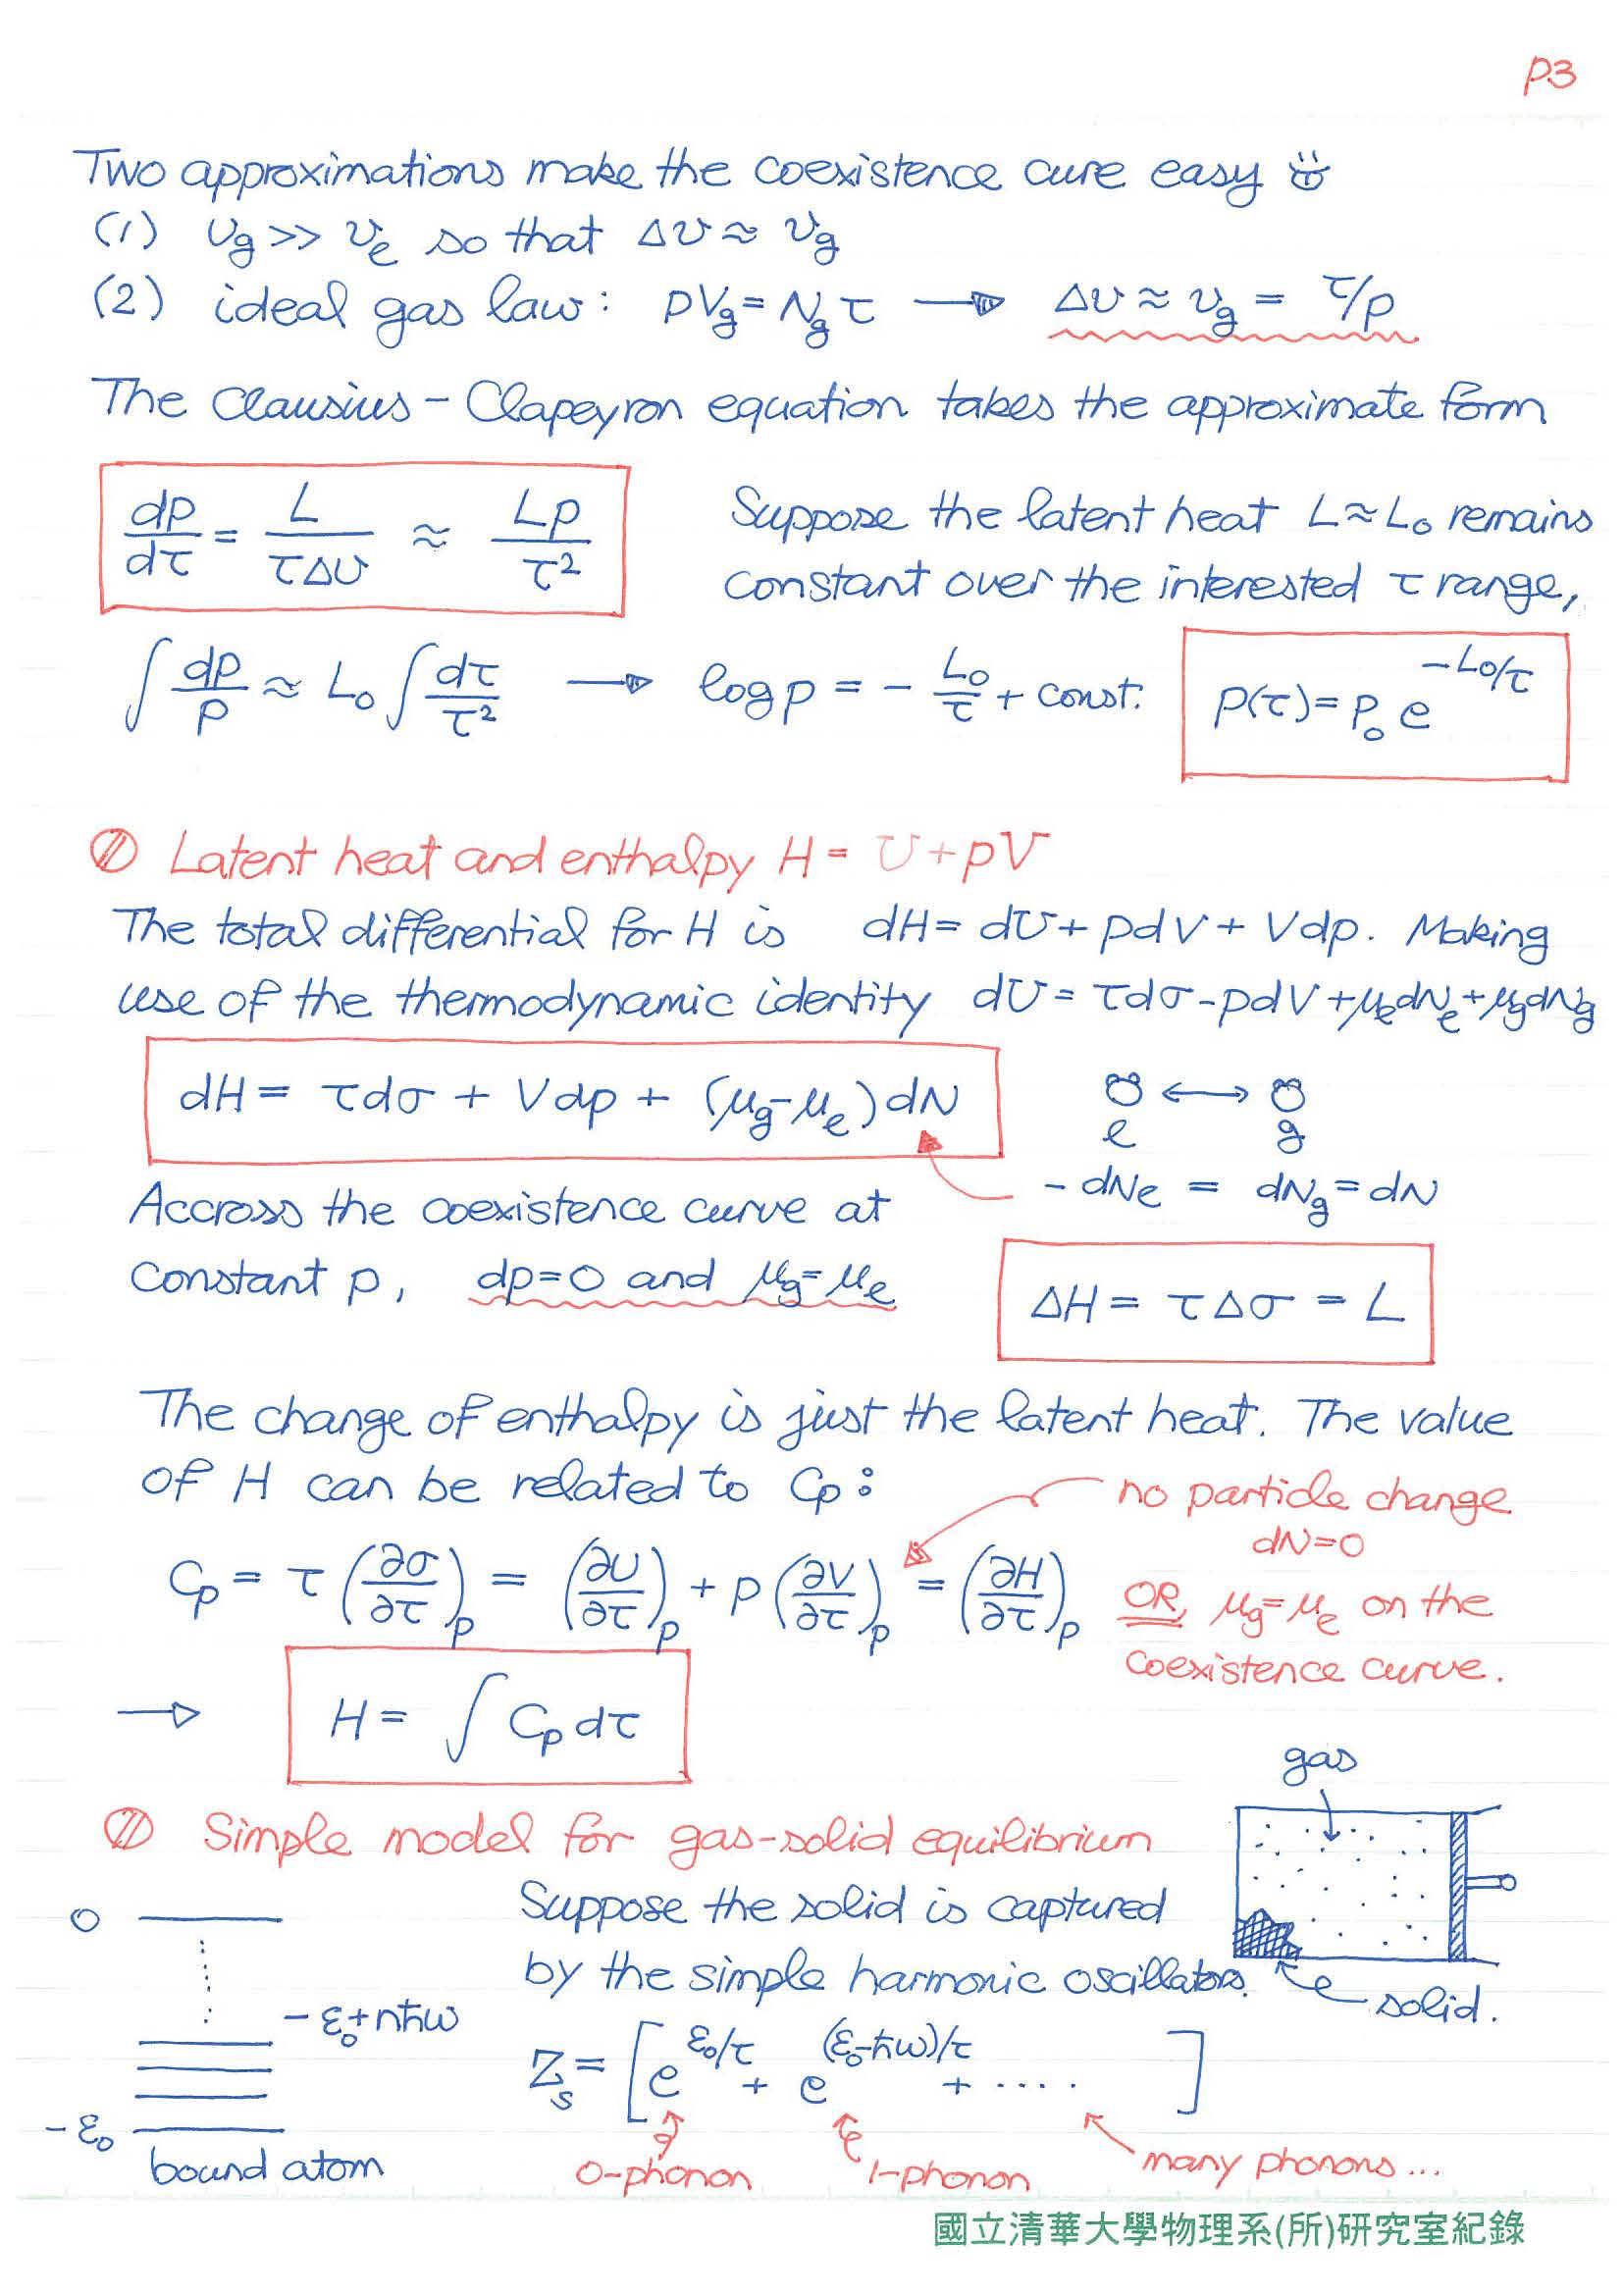 P3
Two approximations make the coexistence cure easy
(1) υg >> υe so that Δυ ≈ υg
(2) ideal gas law: pVg = Ng τ → Δυ ≈ υg = τ/p
The Clausius - Clapeyron equation takes the approximate form
dp/dτ = L/τΔυ ≈ Lp/τ²
Suppose the latent heat L≈L₀ remains
constant over the interested τ range,
∫ dp/p ≈ L₀ ∫ dτ/τ² → log p = - L₀/τ + const. p(τ) = p₀ e^(-L₀/τ)
Latent heat and enthalpy H = U + pV
The total differential for H is dH = dU + pdV + Vdp. Making
use of the thermodynamic identity dU = τdσ - pdV + μedNe + μgdNg
dH = τdσ + Vdp + (μg - μe)dN
e ↔ g
- dNe = dNg = dN
Accross the coexistence curve at
constant p, dp=0 and μg=μe
ΔH = τΔσ = L
The change of enthalpy is just the latent heat. The value
of H can be related to Cp:
no particle change
dN=0
Cp = τ(∂σ/∂τ)p = (∂U/∂τ)p + p(∂V/∂τ)p = (∂H/∂τ)p
OR, μg=μe on the
coexistence curve.
→ H = ∫ Cp dτ
gas
Simple model for gas-solid equilibrium
Suppose the solid is captured
by the simple harmonic oscillators.
solid.
0
- ε₀+nħω
-ε₀
bound atom
Zs = [e^(ε₀/τ) + e^((ε₀-ħω)/τ) + ····]
0-phonon
1-phonon
many phonons...
國立清華大學物理系(所)研究室紀錄